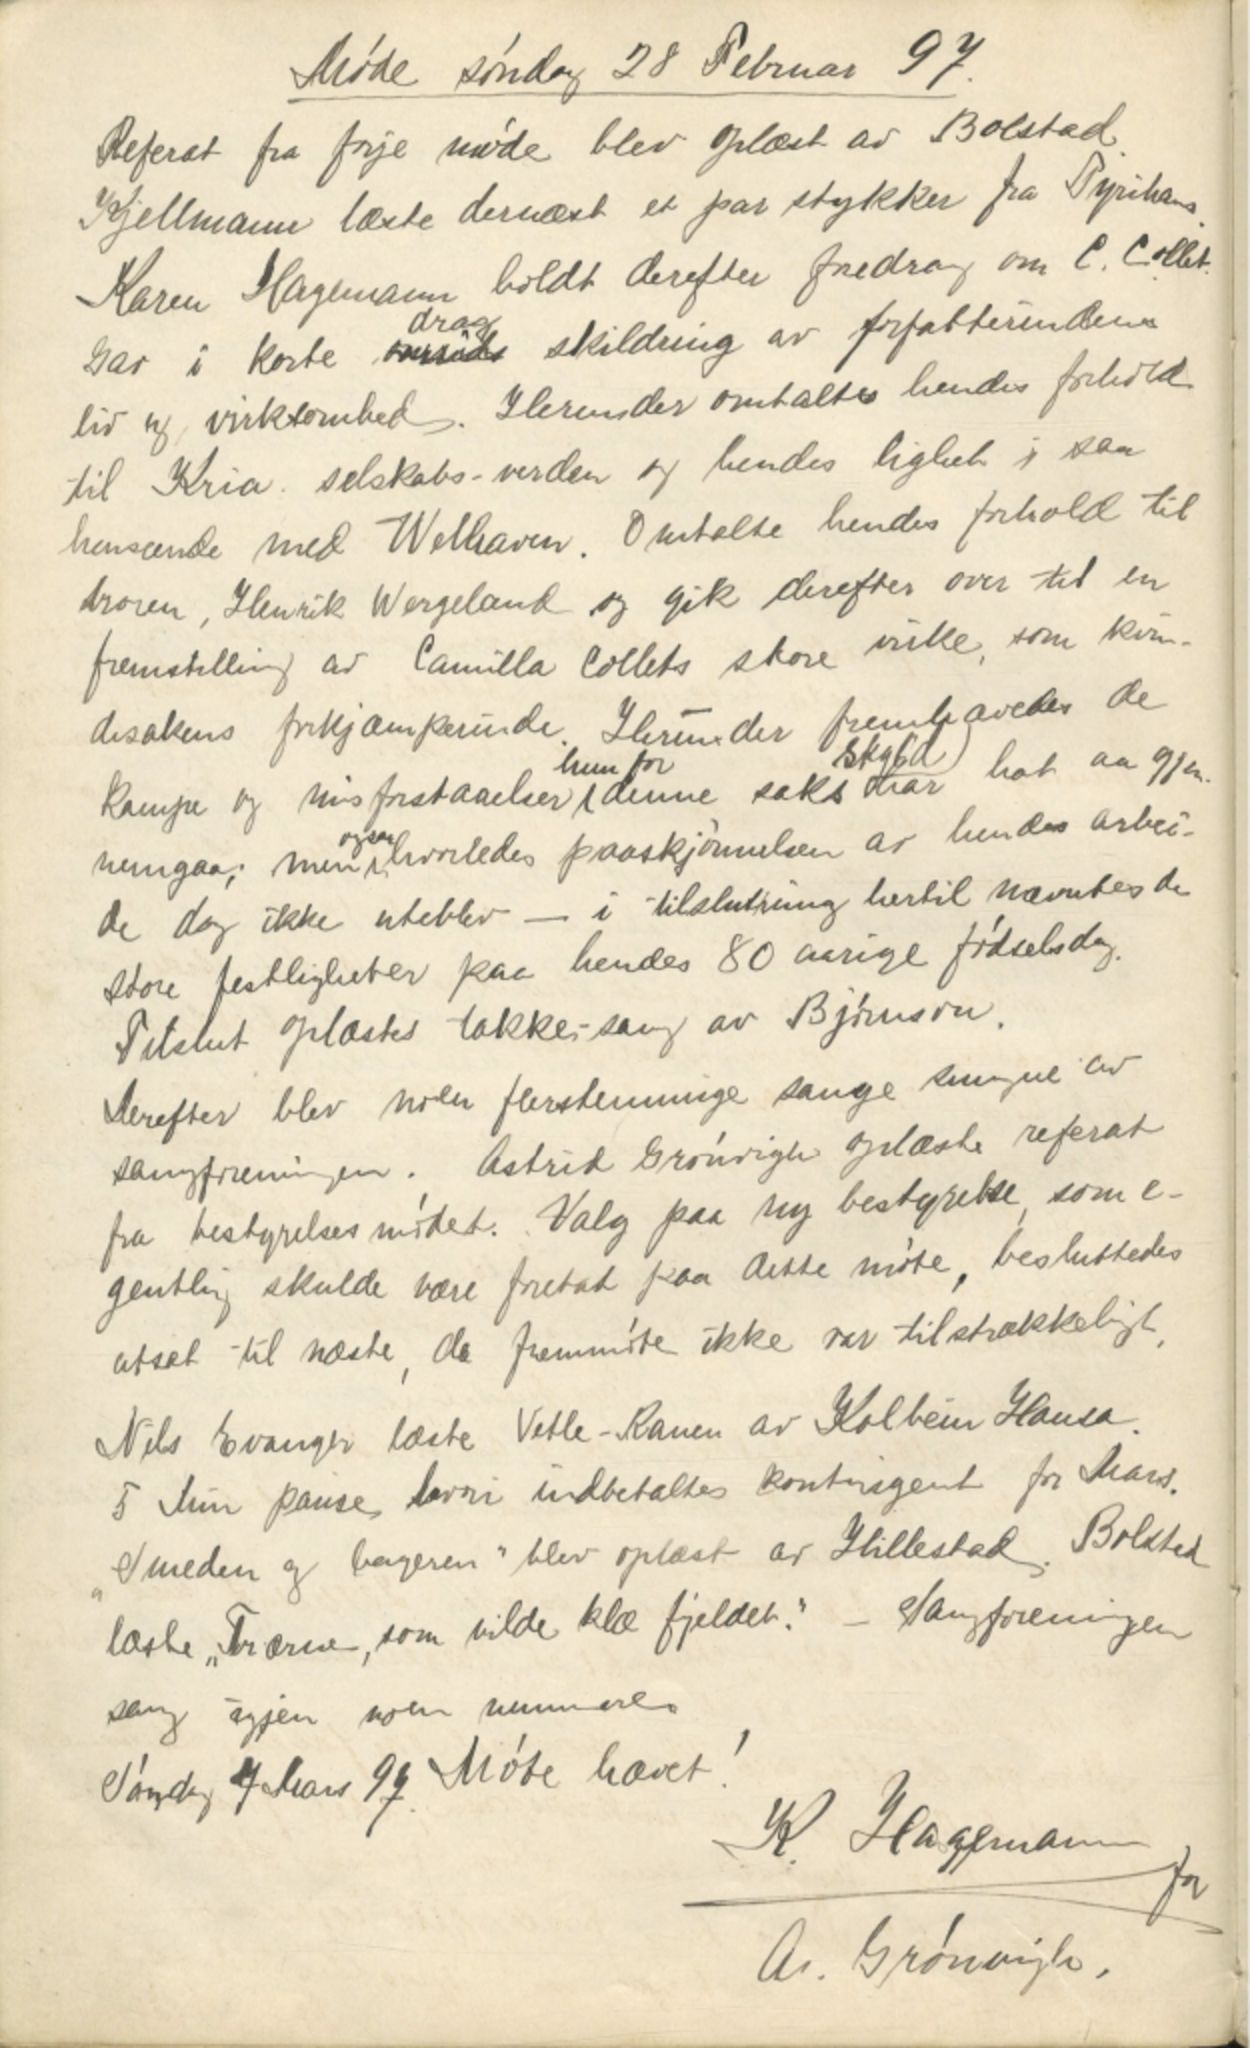 Møde søndag 28 Februar 97.
Referat fra forje møde blev oplæst av Bolstad.
Kjellmann læste dernæst et par stykker fra Tyrihans.
Karen Hagemann holdt derefter foredrag om C. Collet.
Gav i korte drag skildring av forfatterindens
liv og virksomhed. Herunder omtaltes hendes forhold
til Kria. selskabs-verden og hendes lighet i saa
henseende med Welhaven. Omtalte hendes forhold til
broren, Henrik Wergeland og gik derefter over til en
fremstilling av Camilla Collets store virke, som kvin-
desakens forkjæmperinde. Herunder fremhævedes de
kampe og misforstaaelser hun for denne saks skyld har hat aa gjen-
nemgaa; men ogsaa hvorledes paaskjønnelsen av hendes arbei-
de dog ikke uteblev — i tilslutning hertil nævntes de
store festligheter paa hendes 80 aarige fødselsdag.
Tilslut oplæstes takke-sang av Bjørnson.
Derefter blev noen flerstemmige sange sungne av
sangforeningen. Astrid Grønvigh oplæste referat
fra bestyrelsesmødet. Valg paa ny bestyrelse, som e-
gentlig skulde være foretat paa dette møte, besluttedes
utsat til næste, da fremmøte ikke var tilstrækkeligt.
Nils Evanger læste Vetle-Ranen av Kolbein Hausa.
5 Min pause, hvori indbetaltes kontingent for Mars.
„Smeden og bageren" blev oplæst av Hillestad. Bolstad
læste „Trærne, som vilde klæ fjeldet." – Sangforeningen
sang igjen noen nummere.
Søndag 7 Mars 97. Møte hævet!
K. Hagemann
for
As. Grønvigh.